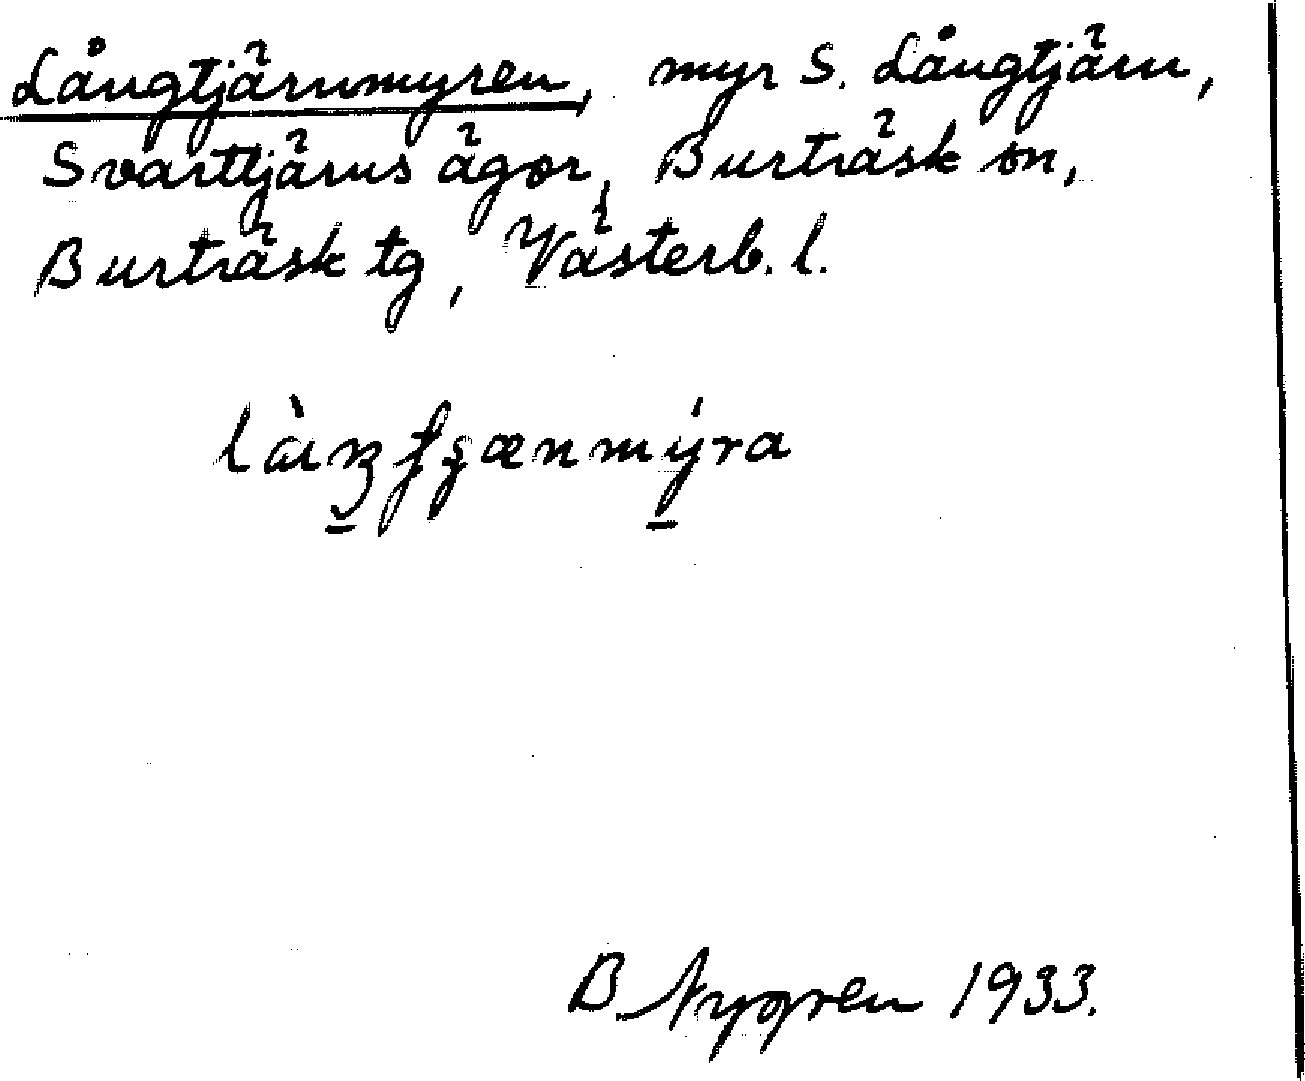 Långtjärnmyren, myr S. Långtjärn,
Svarttjärns ägor, Burträsk sn,
Burträsk tg, Västerb. l.
B Nygren 1933.